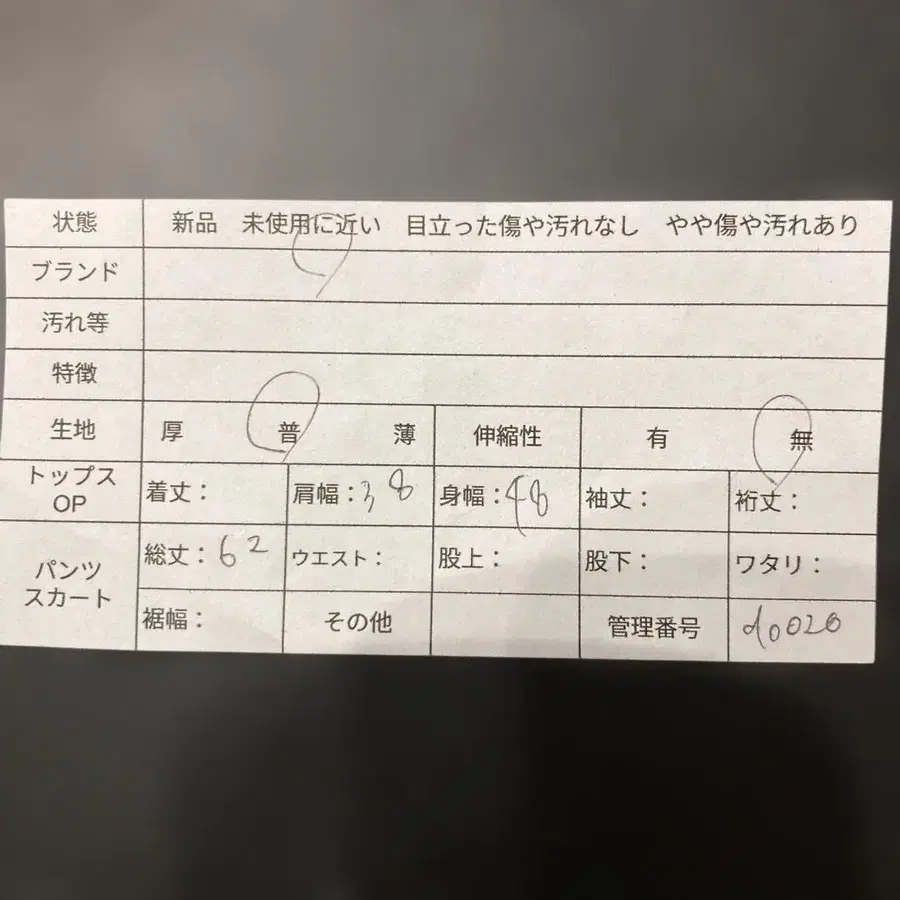 状態 新品 未使用に近い 目立った傷や汚れなし やや傷や汚れあり
ブランド
汚れ等
特徴
生地 厚 普 薄 伸縮性 有 無
トップス
OP 着丈： 肩幅：38 身幅：48 袖丈： 裄丈：
パンツ
スカート 総丈：62 ウエスト： 股上： 股下： ワタリ：
裾幅： その他 管理番号 d0020